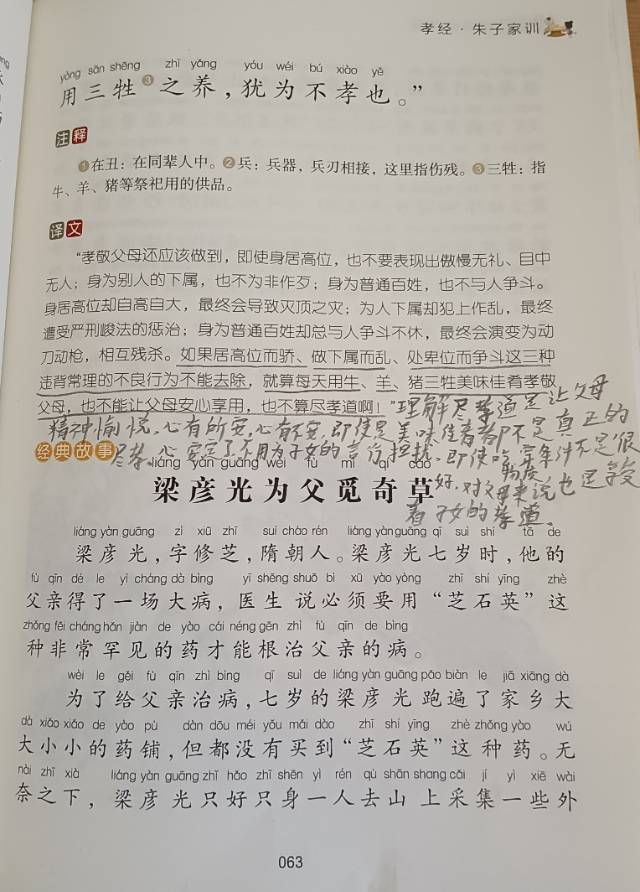 孝经·朱子家训
yòng sān shēng zhī yǎng yóu wéi bú xiào yě
用三牲③之养，犹为不孝也。”
注释
①在丑：在同辈人中。②兵：兵器，兵刃相接，这里指伤残。③三牲：指
牛、羊、猪等祭祀用的供品。
译文
“孝敬父母还应该做到，即使身居高位，也不要表现出傲慢无礼、目中
无人；身为别人的下属，也不为非作歹；身为普通百姓，也不与人争斗。
身居高位却自高自大，最终会导致灭顶之灾；为人下属却犯上作乱，最终
遭受严刑峻法的惩治；身为普通百姓却总与人争斗不休，最终会演变为动
刀动枪，相互残杀。如果居高位而骄、做下属而乱、处卑位而争斗这三种
违背常理的不良行为不能去除，就算每天用牛、羊、猪三牲美味佳肴孝敬
父母，也不能让父母安心享用，也不算尽孝道啊！”
理解尽孝道是让父母
精神愉悦，心有所安，心有不安，即使是美味佳肴都不是真正的
尽孝，心安定了不用为子女的言行担忧，即使吃穿条件不是很
物质
好，对父母来说也是享受
着子女的孝道。
经典故事
liáng yàn guāng wèi fù mì qí cǎo
梁彦光为父觅奇草
liáng yàn guāng zì xiū zhī suí cháo rén liáng yàn guāng qī suì shí tā de
梁彦光，字修芝，隋朝人。梁彦光七岁时，他的
fù qīn dé le yì cháng dà bìng yī shēng shuō bì xū yào yòng zhī shí yīng zhè
父亲得了一场大病，医生说必须要用“芝石英”这
zhǒng fēi cháng hǎn jiàn de yào cái néng gēn zhì fù qīn de bìng
种非常罕见的药才能根治父亲的病。
wèi le gěi fù qīn zhì bìng qī suì de liáng yàn guāng pǎo biàn le jiā xiāng dà
为了给父亲治病，七岁的梁彦光跑遍了家乡大
dà xiǎo xiǎo de yào pù dàn dōu méi yǒu mǎi dào zhī shí yīng zhè zhǒng yào wú
大小小的药铺，但都没有买到“芝石英”这种药。无
nài zhī xià liáng yàn guāng zhǐ hǎo zhī shēn yì rén qù shān shang cǎi jí yì xiē wài
奈之下，梁彦光只好只身一人去山上采集一些外
063